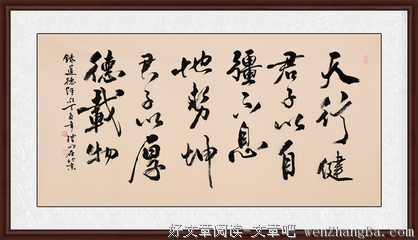 天行健
君子以自
彊不息
地勢坤
君子以厚
德載物
好文章阅读-文章吧 wenZhangBa.com